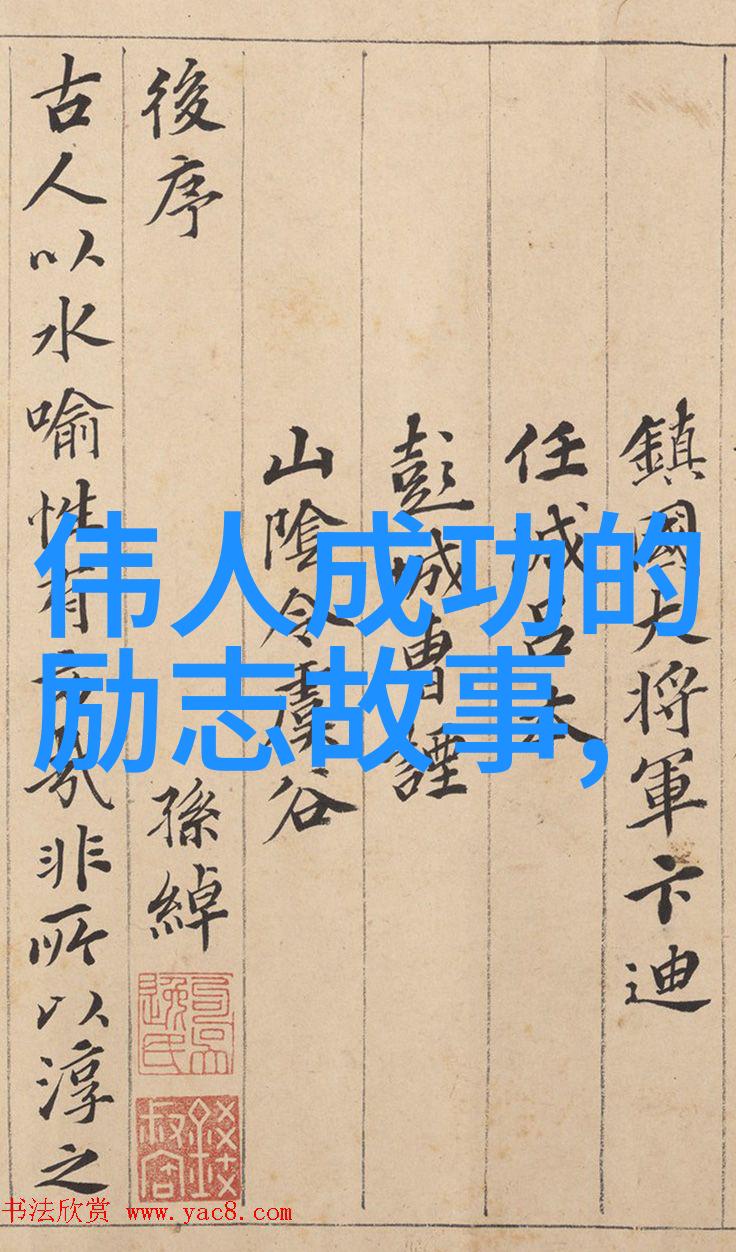 鎮國大將軍卞迪
任城呂本
彭城曹諲
山陰令虞谷
後序
孫綽
古人以水喻性有非所以淳之
伟人成功的
励志故事,
书法欣赏 www.yac8.com